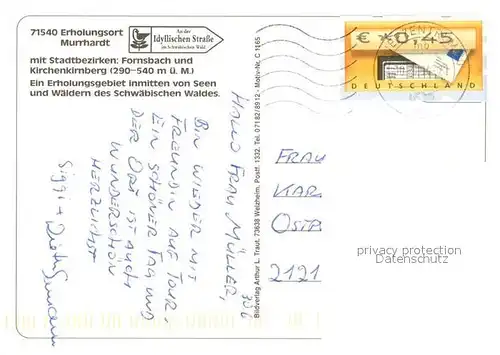 71540 Erholungsort
Murrhardt
An der
Idyllischen Straße
im Schwäbischen Wald
mit Stadtbezirken: Fornsbach und
Kirchenkirnberg (290–540 m ü. M.)
Ein Erholungsgebiet inmitten von Seen
und Wäldern des Schwäbischen Waldes.
HALLO FRAU MÜLLER,
BIN WIEDER MIT
FREUNDIN AUF TOUR.
EIN SCHÖNER TAG UND
DER ORT IST AUCH
WUNDERSCHÖN
HERZLICHST
Siggi +
Bildverlag Arthur L. Traut, 73638 Welzheim, Postf. 1332, Tel. 07182/8912 - Motiv-Nr. C 1865
€ *0,45
DEUTSCHLAND
FRAU
KAR
OSTP
2121
privacy protection
Datenschutz